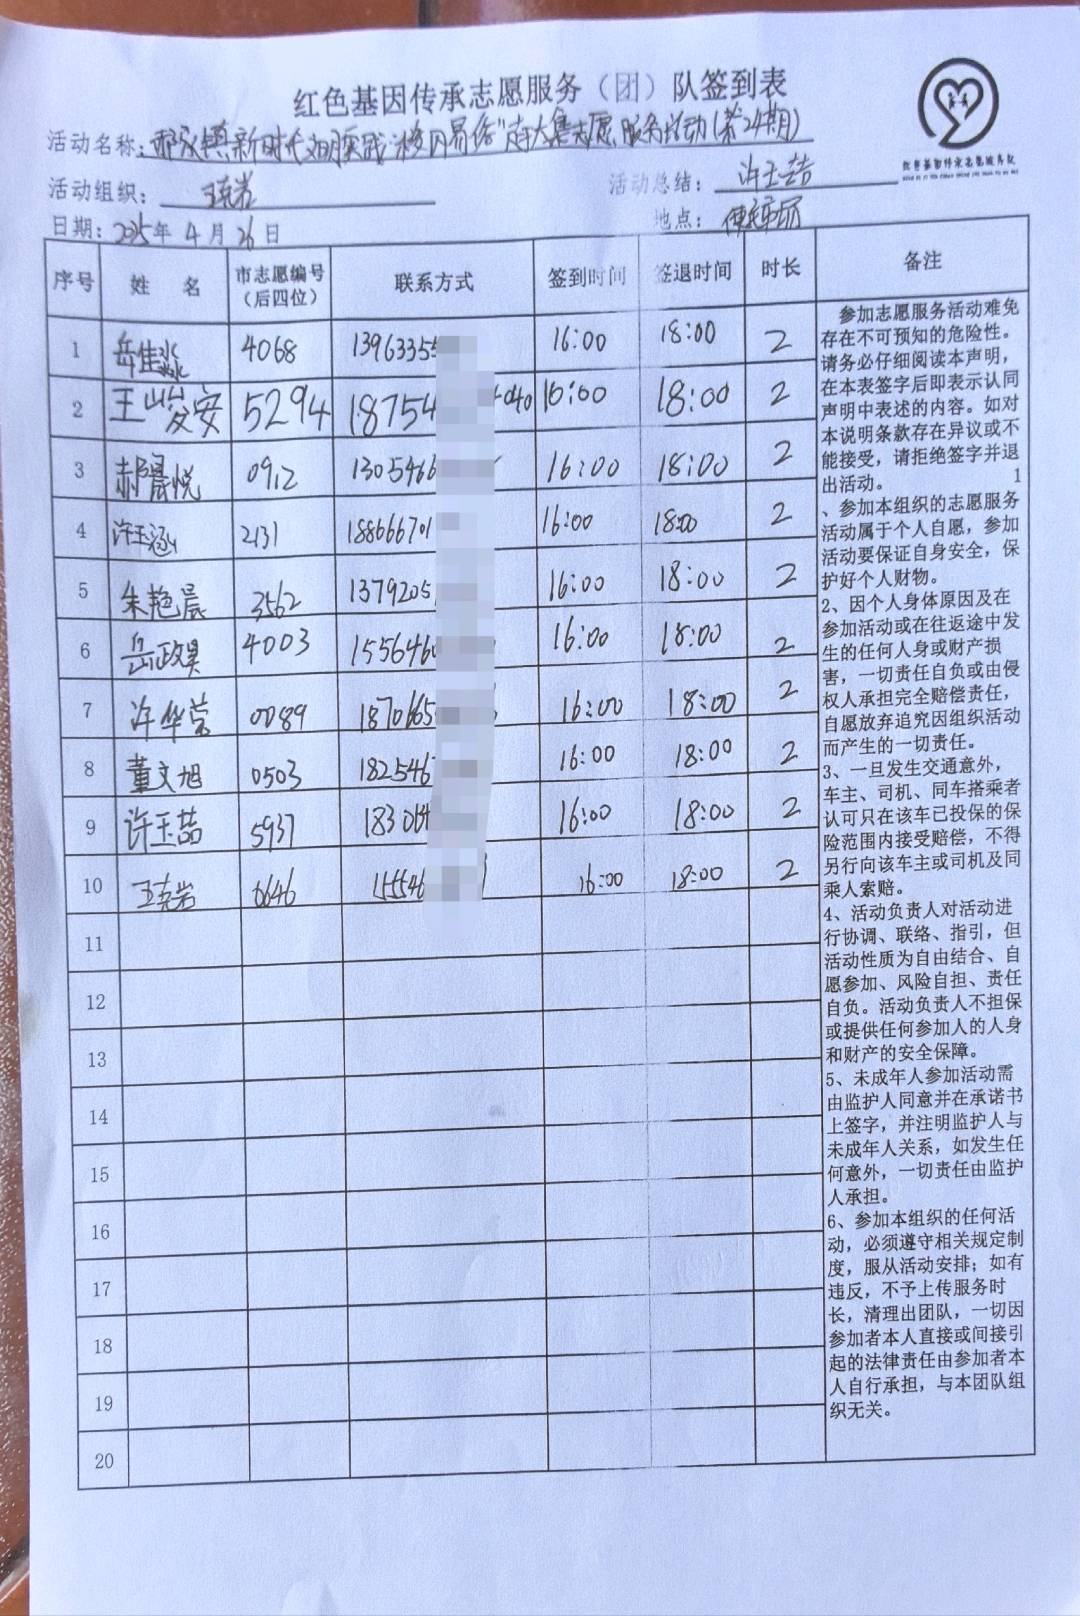 红色基因传承志愿服务（团）队签到表
活动名称：郝家镇新时代文明实践"移风易俗"走大集志愿服务活动(第24期)
活动组织：王克岩 活动总结：许玉喆
日期：2025年4月26日 地点：
红色基因传承志愿服务队
序号 姓 名 市志愿编号（后四位） 联系方式 签到时间 签退时间 时长 备注
1 岳佳淼 4068 13963355 16:00 18:00 2
2 王崂安 5294 18754 040 16:00 18:00 2
3 郝晨悦 0912 1305466 16:00 18:00 2
4 许玉涵 2131 188666701 16:00 18:00 2
5 朱艳晨 3562 1379205 16:00 18:00 2
6 岳政昊 4003 1556460 16:00 18:00 2
7 许华荣 0089 1870665 16:00 18:00 2
8 董文旭 0503 182546 16:00 18:00 2
9 许玉喆 5937 183064 16:00 18:00 2
10 王克岩 0646 155546 16:00 18:00 2
11
12
13
14
15
16
17
18
19
20
参加志愿服务活动难免
存在不可预知的危险性。
请务必仔细阅读本声明，
在本表签字后即表示认同
声明中表述的内容。如对
本说明条款存在异议或不
能接受，请拒绝签字并退
出活动。 1
、参加本组织的志愿服务
活动属于个人自愿，参加
活动要保证自身安全，保
护好个人财物。
2、因个人身体原因及在
参加活动或在往返途中发
生的任何人身或财产损
害，一切责任自负或由侵
权人承担完全赔偿责任，
自愿放弃追究因组织活动
而产生的一切责任。
3、一旦发生交通意外，
车主、司机、同车搭乘者
认可只在该车已投保的保
险范围内接受赔偿，不得
另行向该车主或司机及同
乘人索赔。
4、活动负责人对活动进
行协调、联络、指引，但
活动性质为自由结合、自
愿参加、风险自担、责任
自负。活动负责人不担保
或提供任何参加人的人身
和财产的安全保障。
5、未成年人参加活动需
由监护人同意并在承诺书
上签字，并注明监护人与
未成年人关系，如发生任
何意外，一切责任由监护
人承担。
6、参加本组织的任何活
动，必须遵守相关规定制
度，服从活动安排；如有
违反，不予上传服务时
长，清理出团队，一切因
参加者本人直接或间接引
起的法律责任由参加者本
人自行承担，与本团队组
织无关。